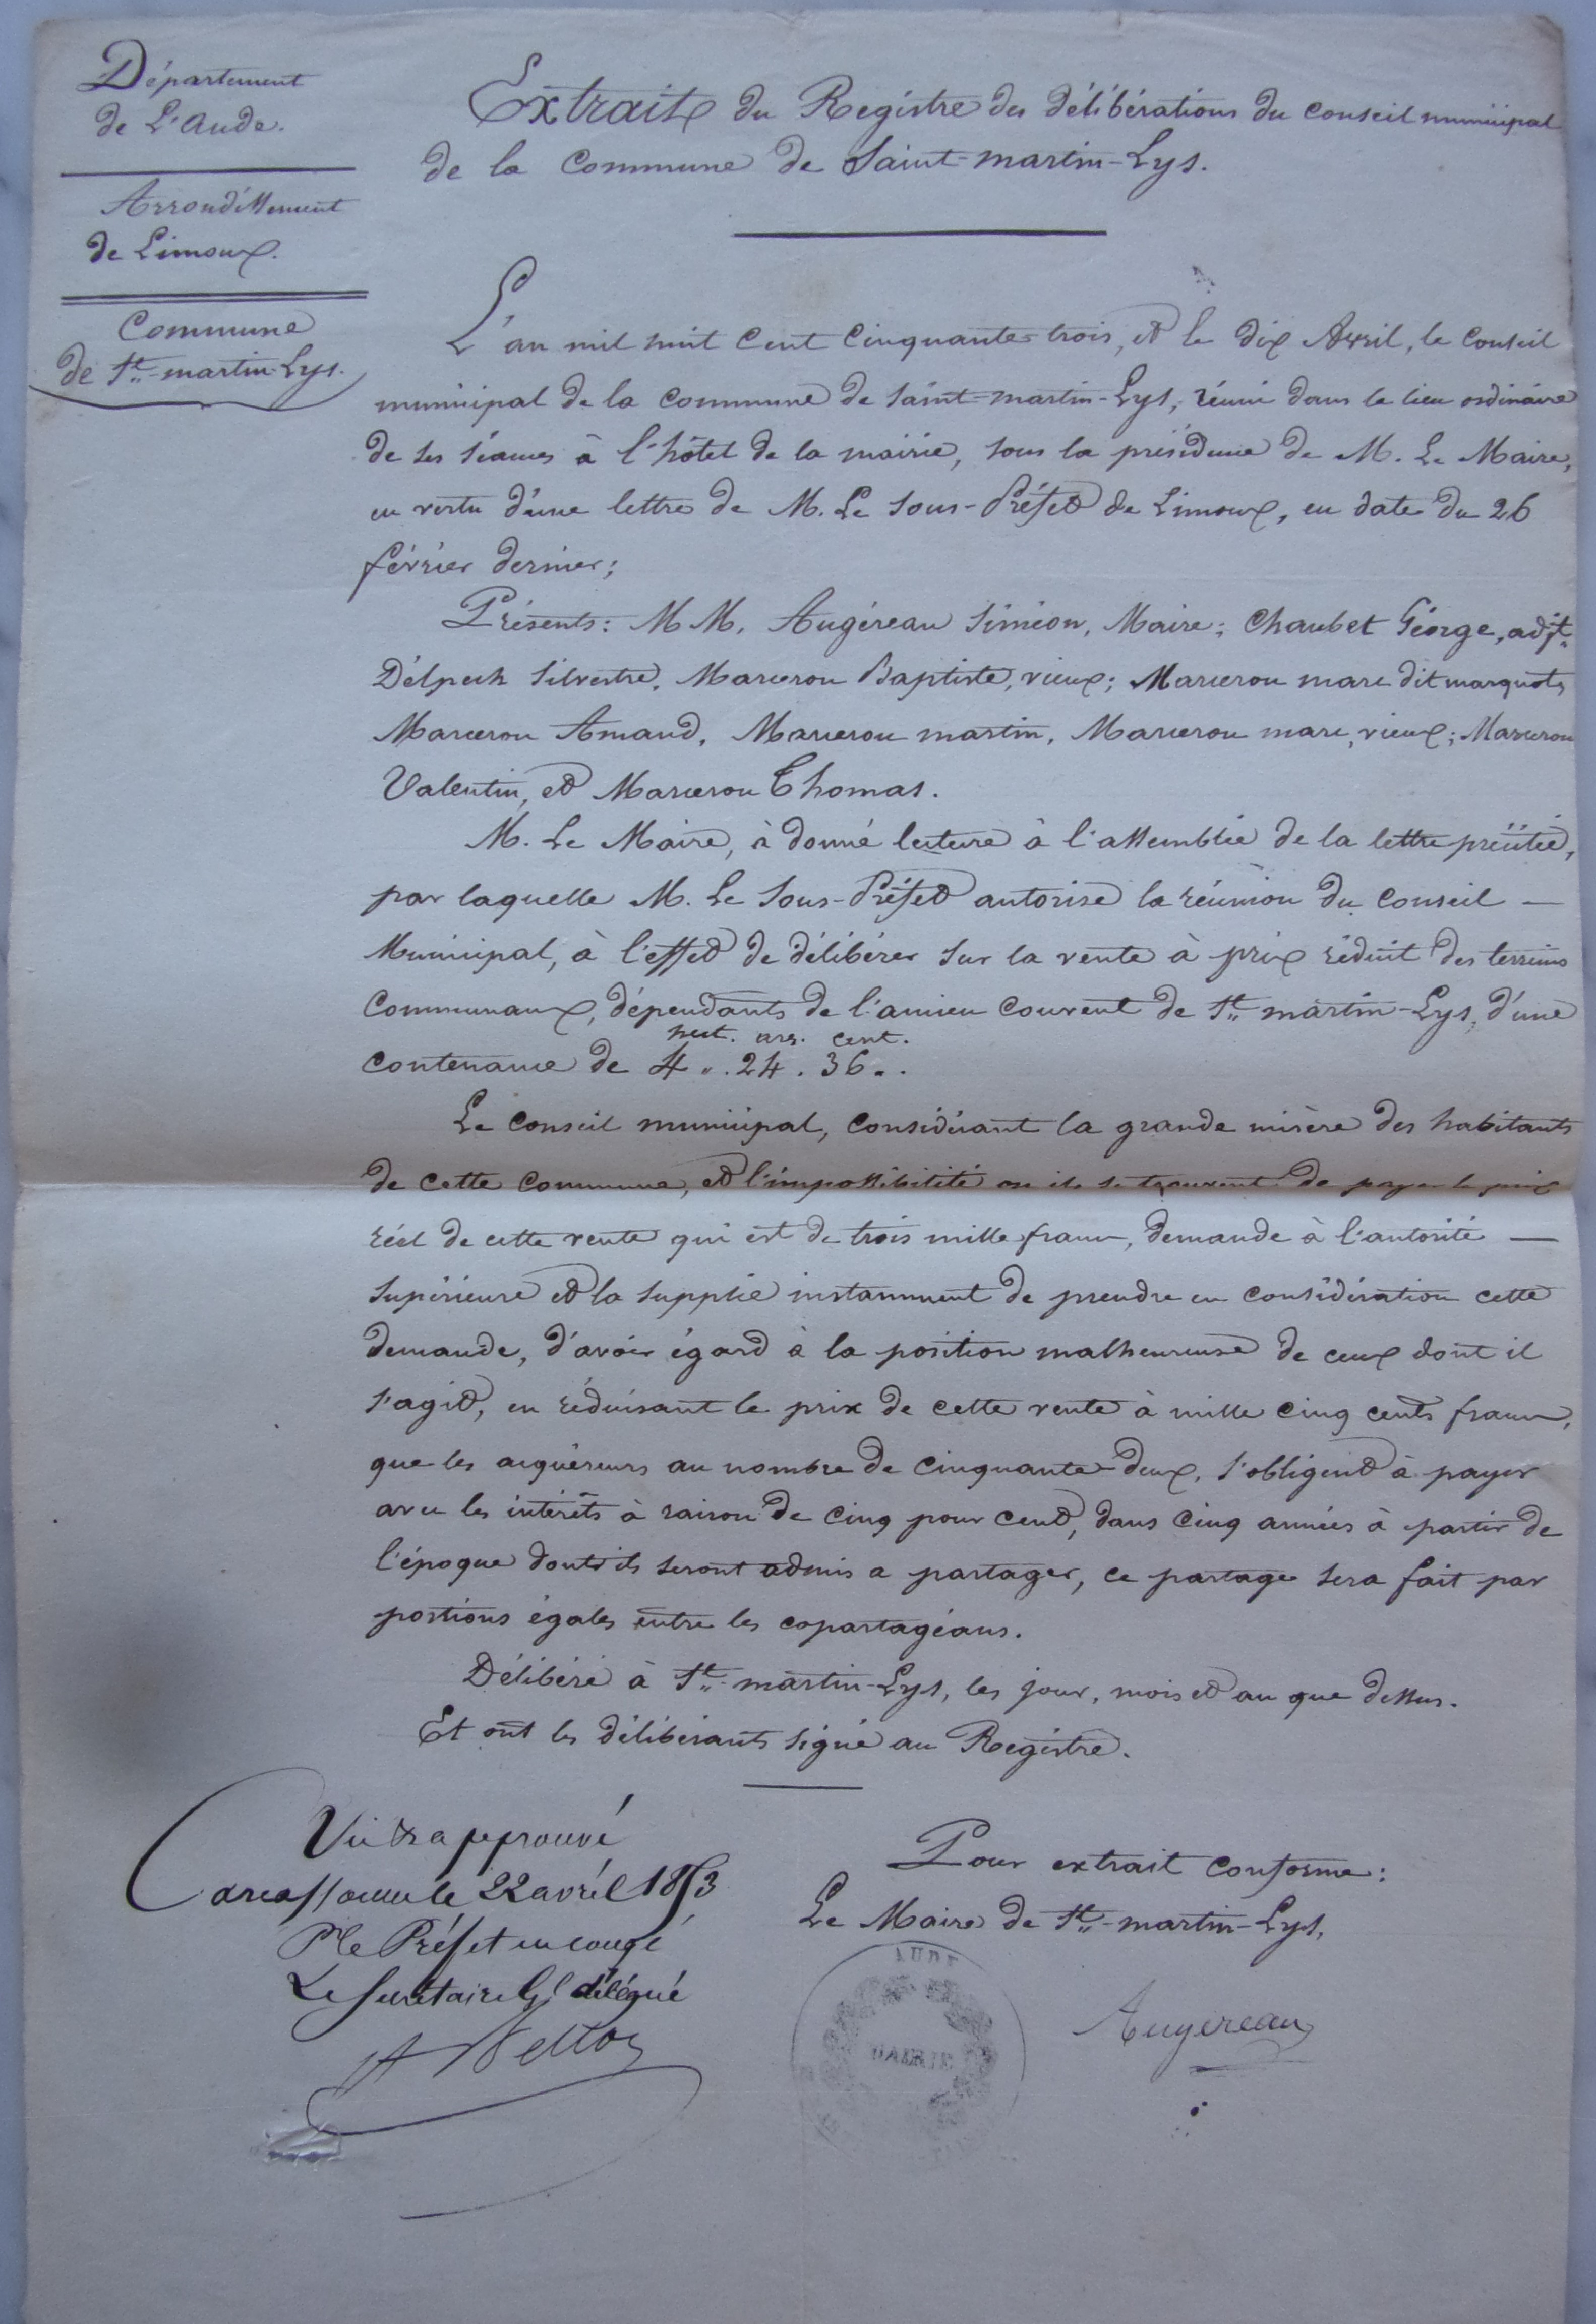 Département
de L'Aude.
Arrondissement
de Limoux.
Commune
de St. martin-Lys.
Extrait du Registre des délibérations du conseil municipal
de la Commune de Saint-martin-Lys.
L'an mil huit Cent Cinquante-trois, et le dix Avril, le Conseil
municipal de la Commune de Saint-martin-Lys, réuni dans le lieu ordinaire
de ses séances à l'hôtel de la mairie, sous la présidence de M. Le Maire,
en vertu d'une lettre de M. Le Sous-Préfet de Limoux, en date du 26
février dernier;
Présents: MM. Augéreau Siméon, Maire; Chaubet Géorge, adjt.
Délpech Silvestre, Marcerou Baptiste, vieux; Marcerou marc dit marquots
Marcerou Amand, Marcerou martin, Marcerou marc, vieux; Marcerou
Valentin, et Marcerou Thomas.
M. Le Maire, à donné lecture à l'assemblée de la lettre précitée,
par laquelle M. Le Sous-Préfet autorise la réunion du Conseil —
Municipal, à l'effet de délibérer sur la vente à prix réduit des terrains
Communaux, dépendants de l'ancien Couvent de St. martin-Lys, d'une
hect. ars. cent.
Contenance de 4 . 24 . 36 .
Le Conseil municipal, Considérant la grande misère des habitants
de cette Commune, et l'impossibilité ou ils se trouvent de payer le prix
réel de cette vente qui est de trois mille francs, demande à l'autorité —
Supérieure et la supplie instamment de prendre en considération cette
demande, d'avoir égard à la position malheureuse de ceux dont il
s'agit, en réduisant le prix de cette vente à mille cinq cents francs,
que les acquéreurs au nombre de Cinquante-deux, s'obligent à payer
avec les intérêts à raison de Cinq pour Cent, dans Cinq années à partir de
l'époque dont ils seront admis a partager, ce partage sera fait par
portions égales entre les copartagéans.
Délibéré à St. martin-Lys, les jour, mois et an que dessus.
Et ont les délibérants signé au Registre.
Vu & approuvé
Carcassonne le 22 avril 1853
Pr le Préfet en congé
Le Secrétaire Gl délégué
Pour extrait Conforme:
Le Maire de St. martin-Lys,
AUDE
MAIRIE
Augereau